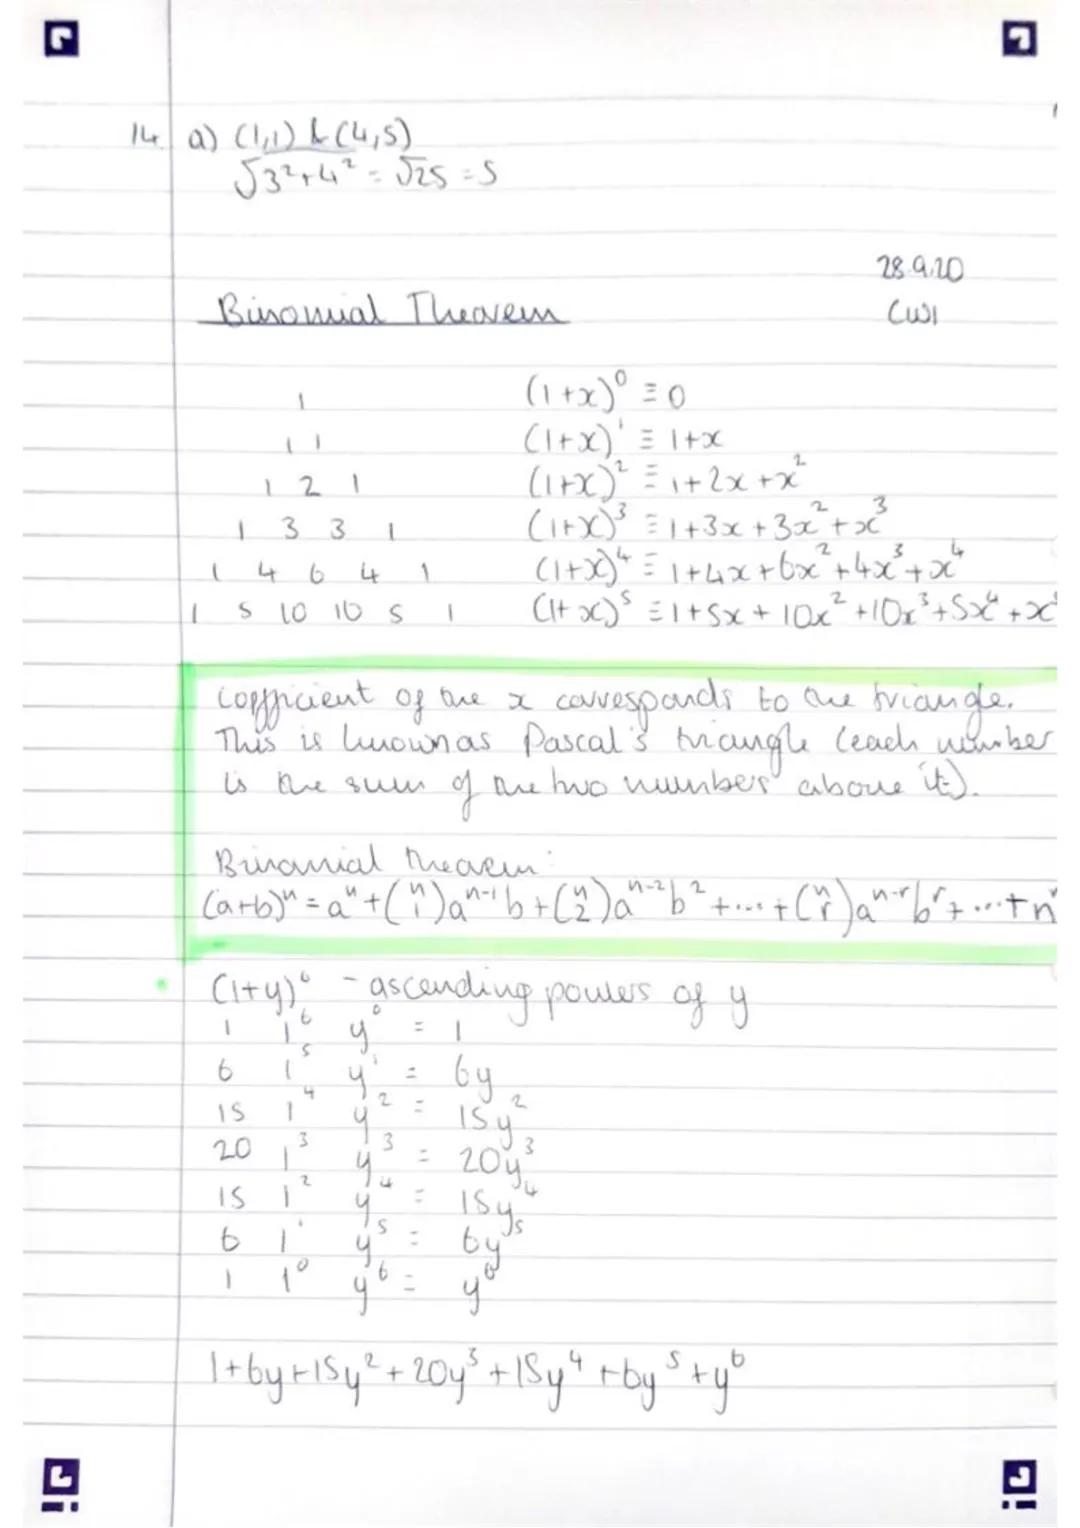 14. a) (1,1) & (4,5)
√3²+4² = √25 = 5
28.9.20
Binomial Theorem
CW1
1 (1+x)⁰ ≡ 0
1 1 (1+x)¹ ≡ 1+x
1 2 1 (1+x)² ≡ 1+2x+x²
1 3 3 1 (1+x)³ ≡ 1+3x+3x²+x³
1 4 6 4 1 (1+x)⁴ ≡ 1+4x+6x²+4x³+x⁴
1 5 10 10 5 1 (1+x)⁵ ≡ 1+5x+10x²+10x³+5x⁴+x
Coefficient of the x corresponds to the triangle.
This is known as Pascal's triangle (each number
is the sum of the two numbers above it).
Binomial theorem:
(a+b)ⁿ = aⁿ+(n 1)aⁿ⁻¹b+(n 2)aⁿ⁻²b²+...+(n r)aⁿ⁻ʳbʳ+...+n
(1+y)⁶ - ascending powers of y
1 1⁶ y⁰ = 1
6 1⁵ y¹ = 6y
15 1⁴ y² = 15y²
20 1³ y³ = 20y³
15 1² y⁴ = 15y⁴
6 1¹ y⁵ = 6y⁵
1 1⁰ y⁶ = y⁶
1+6y+15y²+20y³+15y⁴+6y⁵+y⁶